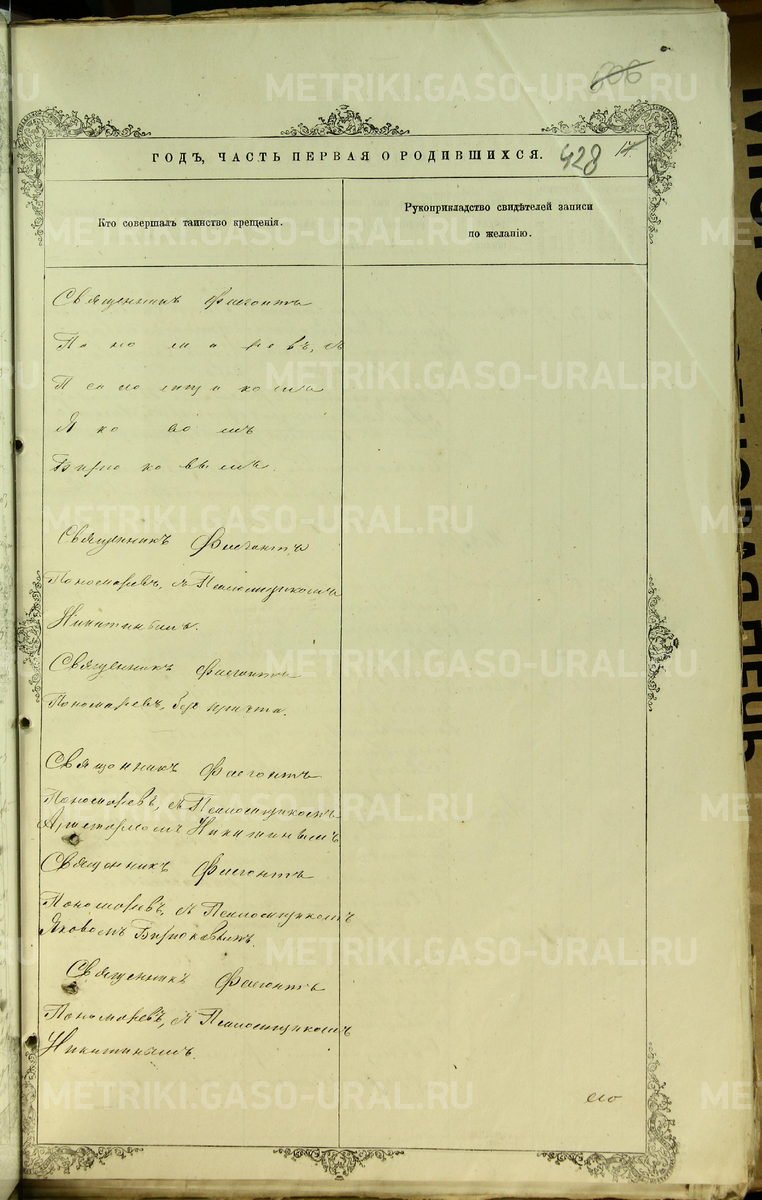 606
ГОДЪ, ЧАСТЬ ПЕРВАЯ О РОДИВШИХСЯ.
428
14
Кто совершалъ таинство крещенія.
Рукоприкладство свидѣтелей записи
по желанію.
Священникъ Фlегонтъ
Пономаревъ, съ
Псаломщикомъ
Яковомъ
Бирюковымъ.
Священникъ Флегонтъ
Пономаревъ, съ Псаломщикомъ
Никитинымъ.
Священникъ Флегонтъ
Пономаревъ, безъ причта.
Священникъ Флегонтъ
Пономаревъ, съ Псаломщикомъ
Аристархомъ Никитинымъ
Священникъ Флегонтъ
Пономаревъ, съ Псаломщикомъ
Яковомъ Бирюковымъ.
Священникъ Флегонтъ
Пономаревъ, съ Псаломщикомъ
Никитинымъ.
METRIKI.GASO-URAL.RU